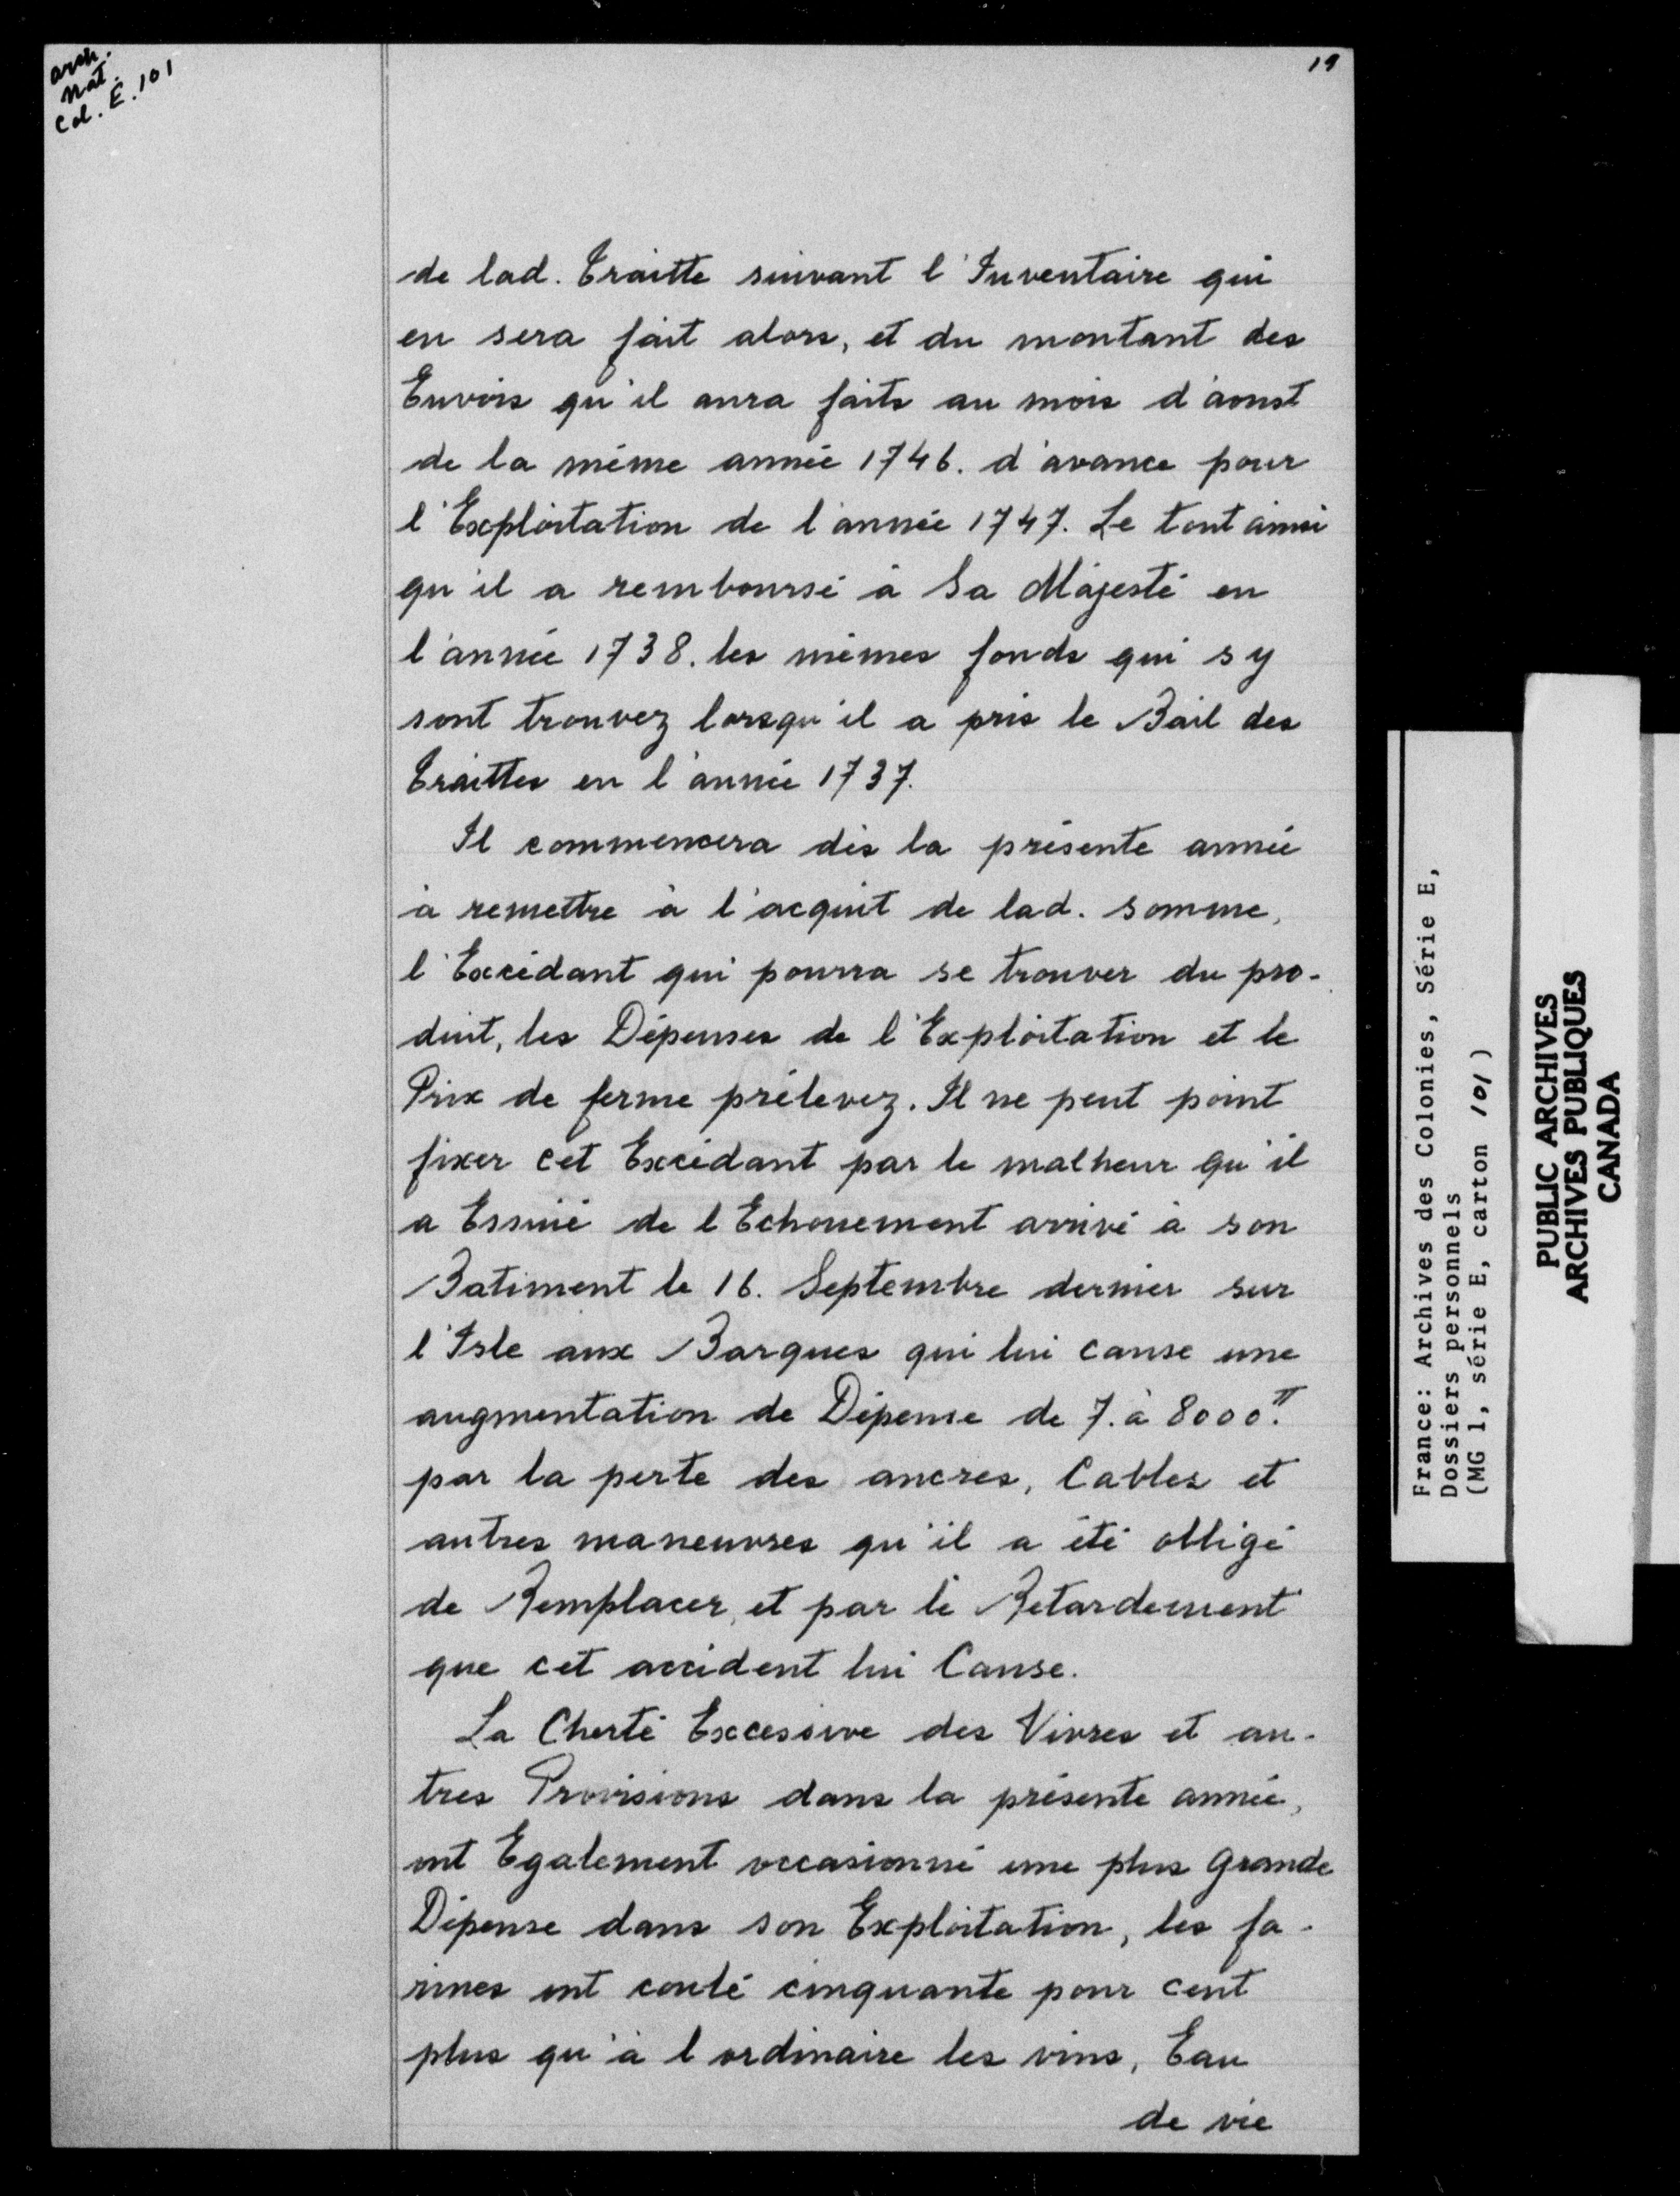 arch.
nat.
Col. E. 101
19
de lad. Traitte suivant l'Inventaire qui
en sera fait alors, et du montant des
Envois qu'il aura faits au mois d'aoust
de la même année 1746. d'avance pour
l'Exploitation de l'année 1747. Le tout ainsi
qu'il a remboursé à Sa Majesté en
l'année 1738. les mêmes fonds qui s'y
sont trouvez lorsqu'il a pris le Bail des
Traittes en l'année 1737.
Il commencera dès la présente année
à remettre à l'acquit de lad. somme,
l'Excédant qui pourra se trouver du pro-
duit, les Dépenses de l'Exploitation et le
Prix de ferme prélevez. Il ne peut point
fixer cet Excédant par le malheur qu'il
a Essuié de l'Echouement arrivé à son
Batiment le 16. Septembre dernier sur
l'Isle aux Barques qui lui cause une
augmentation de Dépense de 7. à 8000.ᵗᵗ
par la perte des ancres, Cables et
autres maneuvres qu'il a été obligé
de Remplacer, et par le Retardement
que cet accident lui Cause.
La Cherté Excessive des Vivres et au-
tres Provisions dans la présente année,
ont Egalement occasionné une plus grande
Dépense dans son Exploitation, les fa-
rines ont couté cinquante pour cent
plus qu'à l'ordinaire les vins, Eau
de vie
France: Archives des Colonies, Série E,
Dossiers personnels
(MG 1, série E, carton 101)
PUBLIC ARCHIVES
ARCHIVES PUBLIQUES
CANADA